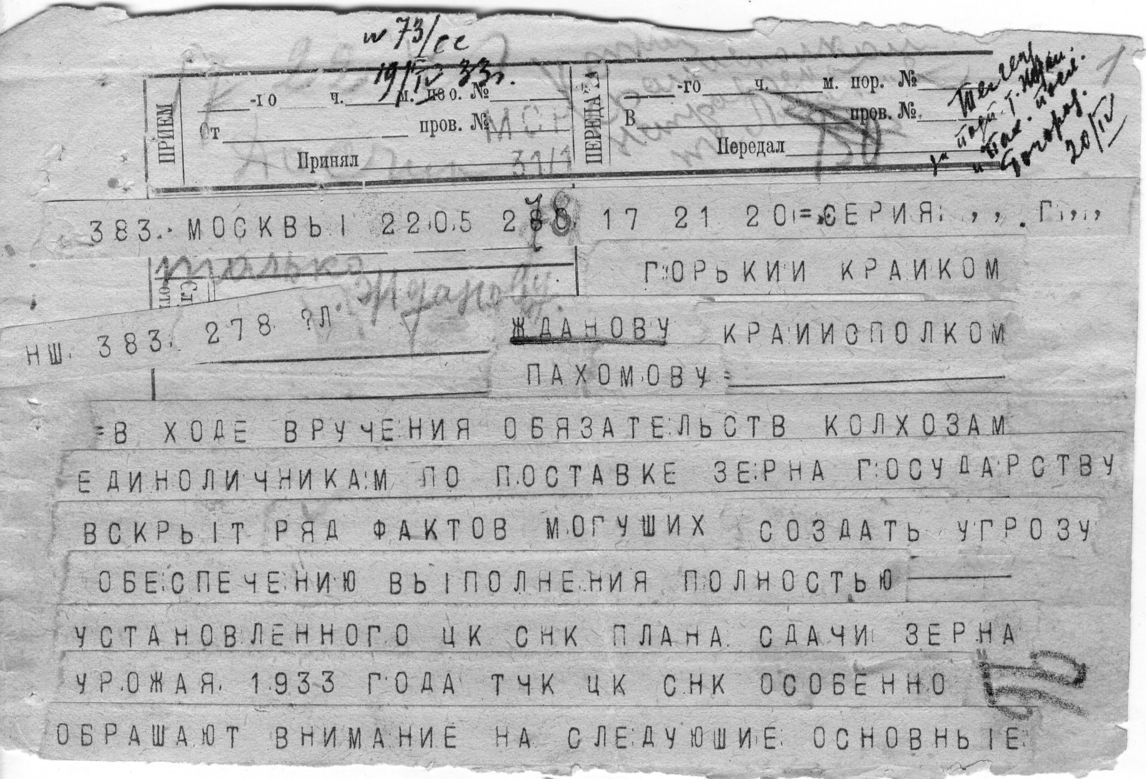 N 73/сс
19/IV 33 г.
ПРИЕМ
-го ч. м. по о. №
От пров. №
Принял 31/1
ПЕРЕДАЧА
-го ч. м. пор. №
В пров. №
Передал
20/IV
1
383. МОСКВЫ 22.05 280 17 21 20 = СЕРИЯ , , . Г , ,
78
только
Жданову.
ГОРЬКИИ КРАИКОМ
НШ. 383. 278 ?Л.
ЖДАНОВУ КРАИИСПОЛКОМ
ПАХОМОВУ =
=В ХОДЕ ВРУЧЕНИЯ ОБЯЗАТЕЛЬСТВ КОЛХОЗАМ
ЕДИНОЛИЧНИКАМ ПО ПОСТАВКЕ ЗЕРНА ГОСУДАРСТВУ
ВСКРЫТ РЯД ФАКТОВ МОГУШИХ СОЗДАТЬ УГРОЗУ
ОБЕСПЕЧЕНИЮ ВЫПОЛНЕНИЯ ПОЛНОСТЬЮ
УСТАНОВЛЕННОГО ЦК СНК ПЛАНА СДАЧИ ЗЕРНА
УРОЖАЯ 1933 ГОДА ТЧК ЦК СНК ОСОБЕННО
ОБРАШАЮТ ВНИМАНИЕ НА СЛЕДУЮШИЕ ОСНОВНЫЕ